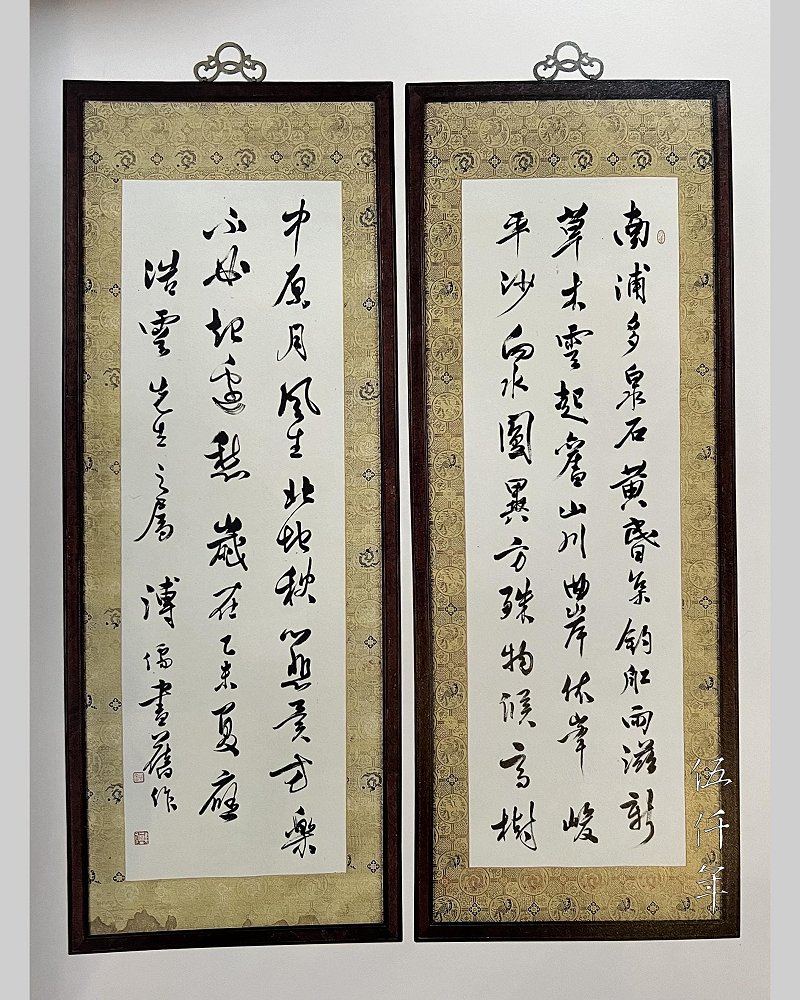 南浦多泉石黃昏集釣船雨滋新
草木雲起舊山川曲岸依峯峻
平沙向水圓異方殊物候高樹
中原月風生北地秋異方樂
不起邊愁歲在乙未夏應
浩雲先生之屬 溥儒書舊作
伍仟年